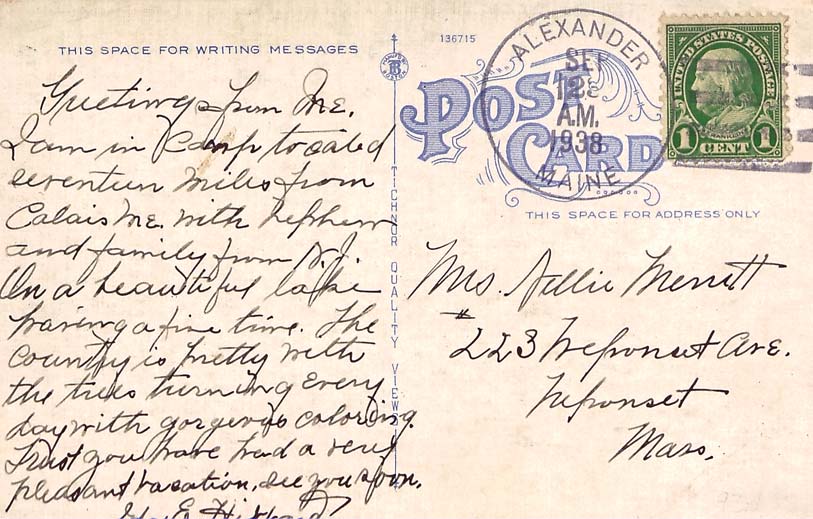 THIS SPACE FOR WRITING MESSAGES
Greetings from Me.
I am in Camp located
seventeen miles from
Calais Me. with nephew
and family from N.J.
On a beautiful lake
having a fine time. The
country is pretty with
the trees turning every
day with gorgeous coloring.
Trust you have had a very
pleasant vacation, see you soon.
E. Hibbard
TICHNOR QUALITY VIEWS
136715
POST CARD
ALEXANDER
SEP
A.M.
1938
MAINE
UNITED STATES POSTAGE
FRANKLIN
1 CENT 1
THIS SPACE FOR ADDRESS ONLY
Mrs. Nellie Merritt
#223 Neponset Ave.
Neponset
Mass.